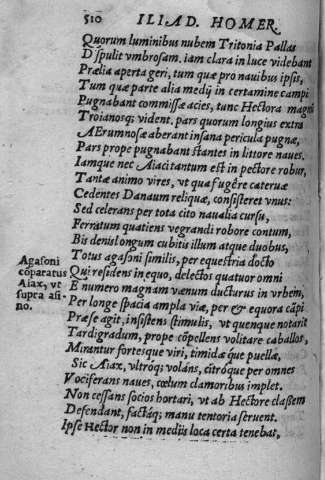 510 ILIAD. HOMER.
Quorum luminibus nubem Tritonia Pallas
Dispulit vmbrosam. iam clara in luce videbant
Prælia aperta geri, tum quæ pro nauibus ipsis,
Tum quæ parte alia medij in certamine campi
Pugnabant commissæ acies, tunc Hectora magni
Troianosq; vident. pars quorum longius extra
AErumnosæ aberant insana pericula pugnæ,
Pars prope pugnabant stantes in littore naues.
Iamque nec Aiaci tantum est in pectore robur,
Tantæ animo vires, vt quà fugêre cateruæ
Cedentes Danaum reliquæ, consisteret vnus:
Sed celerans per tota cito naualia cursu,
Ferratum quatiens vegrandi robore contum,
Bis denis longum cubitis illum atque duobus,
Totus agasoni similis, per equestria docto
Agasoni
cõparatus
Aiax, vt
supra asi-
no.
Qui residens in equo, delectos quatuor omni
E numero magnam vænum ducturus in vrbem,
Per longe spacia ampla viæ, per & equora cãpi
Præse agit, insistens stimulis, vt quenque notarit
Tardigradum, prope cõpellens volitare caballos,
Mirantur fortesque viri, timidæ que puellæ,
Sic Aiax, vltròq; volãns, citróque per omnes
Vociferans naues, cœlum clamoribus implet.
Non cessans socios hortari, vt ab Hectore classem
Defendant, factáq; manu tentoria seruent.
Ipse Hector non in mediis loca certa tenebat,